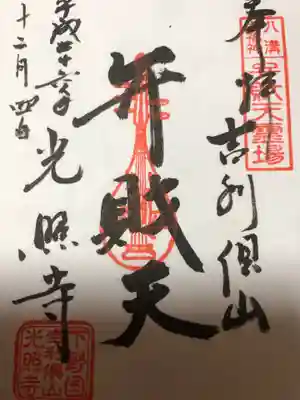 奉拝 吉利倶山
八溝
七福神
弁財天霊場
弁財天
光照寺
平成二十六年
十二月四日
下野国
吉利倶山
光照寺